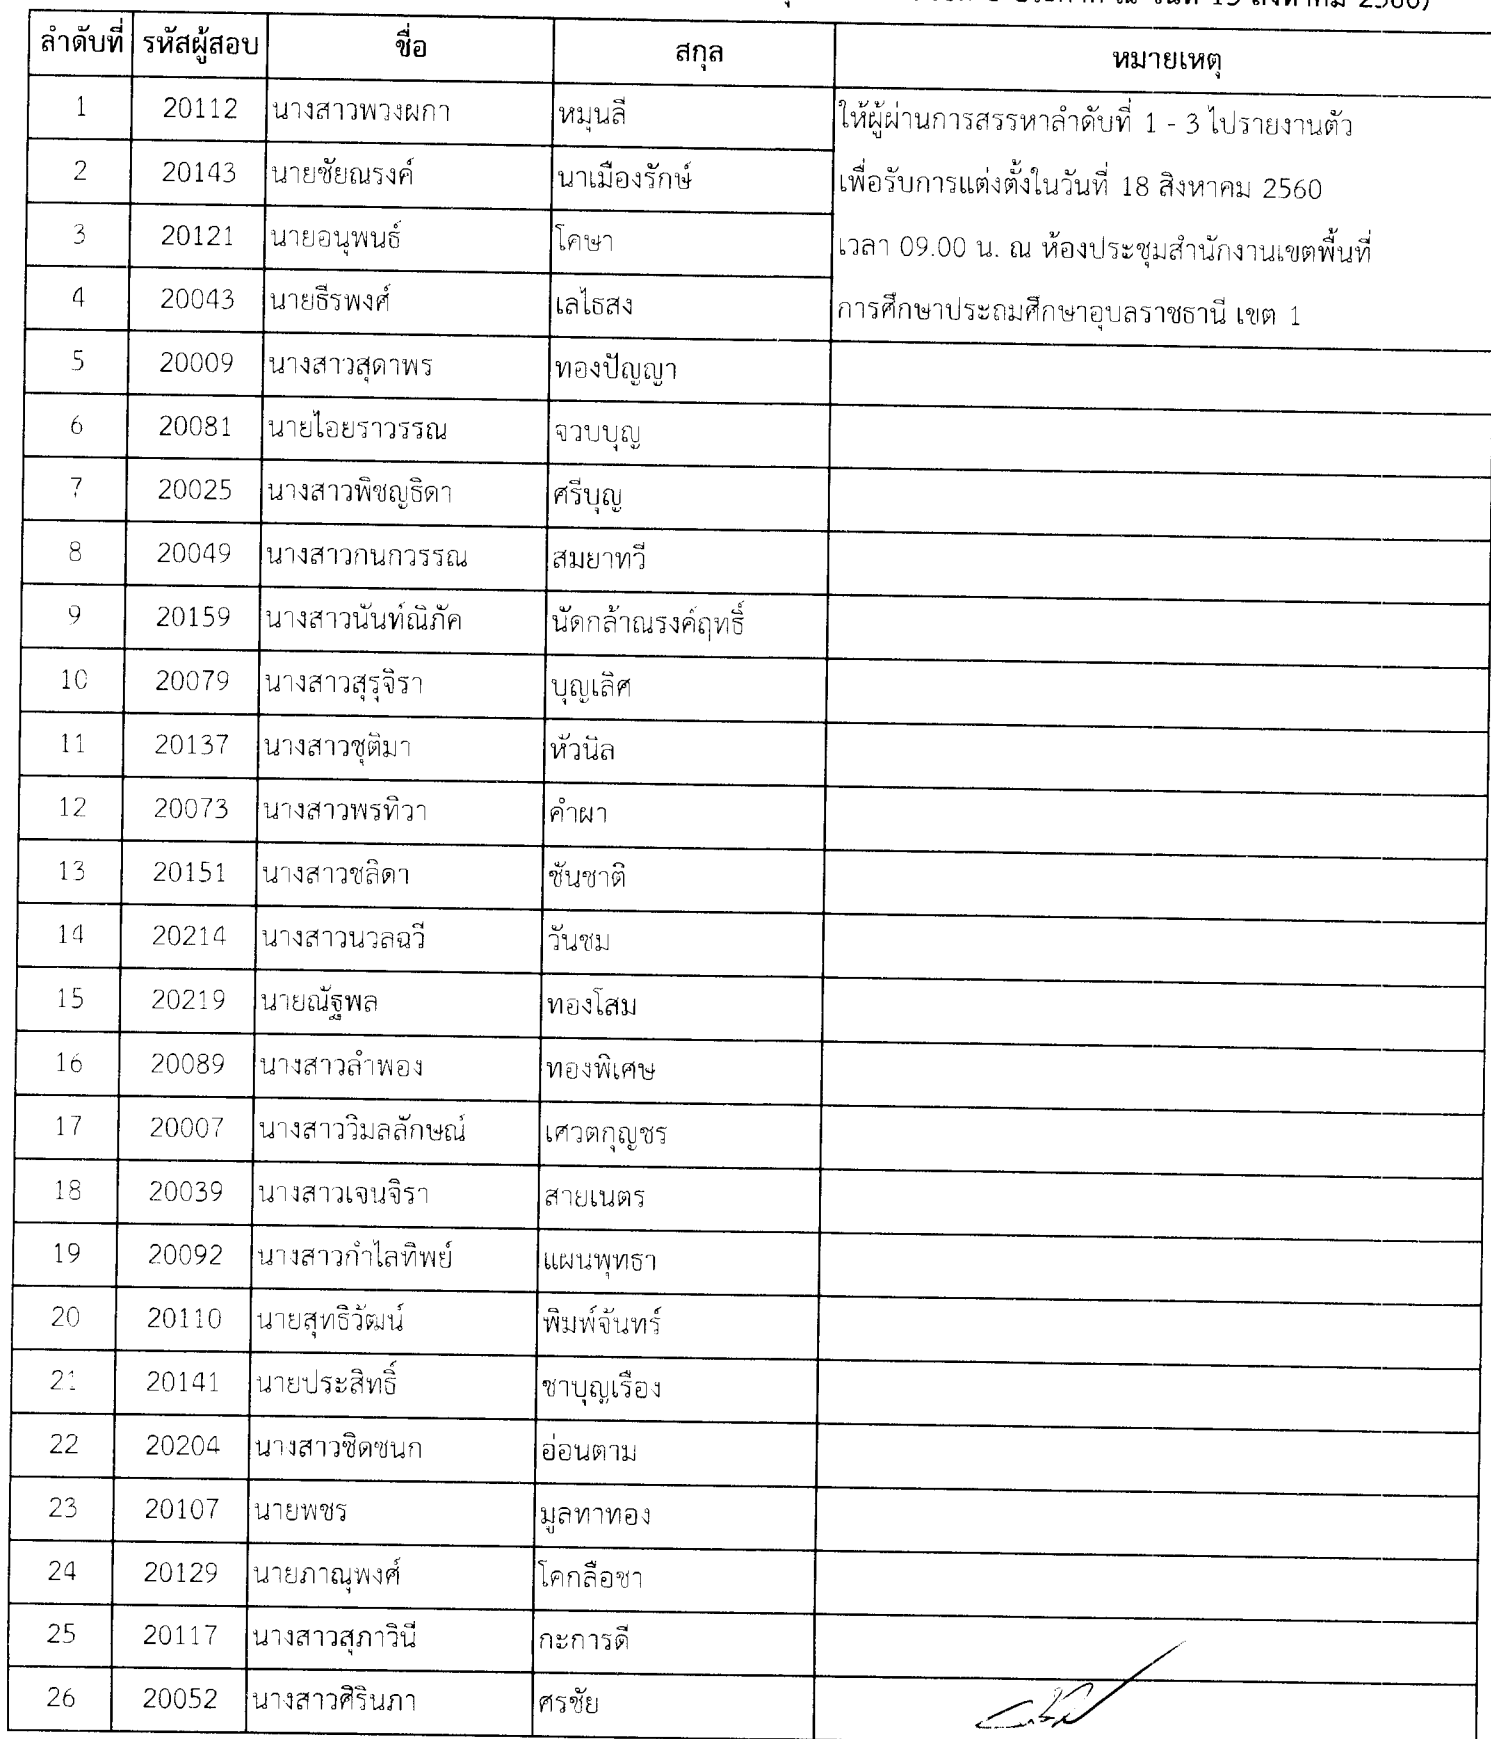 วันที่ 15 สิงหาคม 2560)
ลำดับที่ รหัสผู้สอบ ชื่อ สกุล หมายเหตุ
1 20112 นางสาวพวงผกา หมุนลี ให้ผู้ผ่านการสรรหาลำดับที่ 1 - 3 ไปรายงานตัว
2 20143 นายชัยณรงค์ นาเมืองรักษ์ เพื่อรับการแต่งตั้งในวันที่ 18 สิงหาคม 2560
3 20121 นายอนุพนธ์ โคษา เวลา 09.00 น. ณ ห้องประชุมสำนักงานเขตพื้นที่
4 20043 นายธีรพงศ์ เลไธสง การศึกษาประถมศึกษาอุบลราชธานี เขต 1
5 20009 นางสาวสุดาพร ทองปัญญา
6 20081 นายไอยราวรรณ จวบบุญ
7 20025 นางสาวพิชญธิดา ศรีบุญ
8 20049 นางสาวกนกวรรณ สมยาทวี
9 20159 นางสาวนันท์ณิภัค นัดกล้าณรงค์ฤทธิ์
10 20079 นางสาวสุรุจิรา บุญเลิศ
11 20137 นางสาวชุติมา หัวนิล
12 20073 นางสาวพรทิวา คำผา
13 20151 นางสาวชลิดา ชันชาติ
14 20214 นางสาวนวลฉวี วันชม
15 20219 นายณัฐพล ทองโสม
16 20089 นางสาวลำพอง ทองพิเศษ
17 20007 นางสาววิมลลักษณ์ เศวตกุญชร
18 20039 นางสาวเจนจิรา สายเนตร
19 20092 นางสาวกำไลทิพย์ แผนพุทธา
20 20110 นายสุทธิวัฒน์ พิมพ์จันทร์
21 20141 นายประสิทธิ์ ชาบุญเรือง
22 20204 นางสาวชิดชนก อ่อนตาม
23 20107 นายพชร มูลทาทอง
24 20129 นายภาณุพงศ์ โคกลือชา
25 20117 นางสาวสุภาวินี กะการดี
26 20052 นางสาวศิรินภา ศรชัย